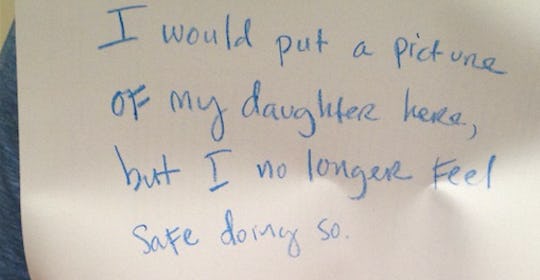 I would put a picture
of my daughter here,
but I no longer feel
safe doing so.